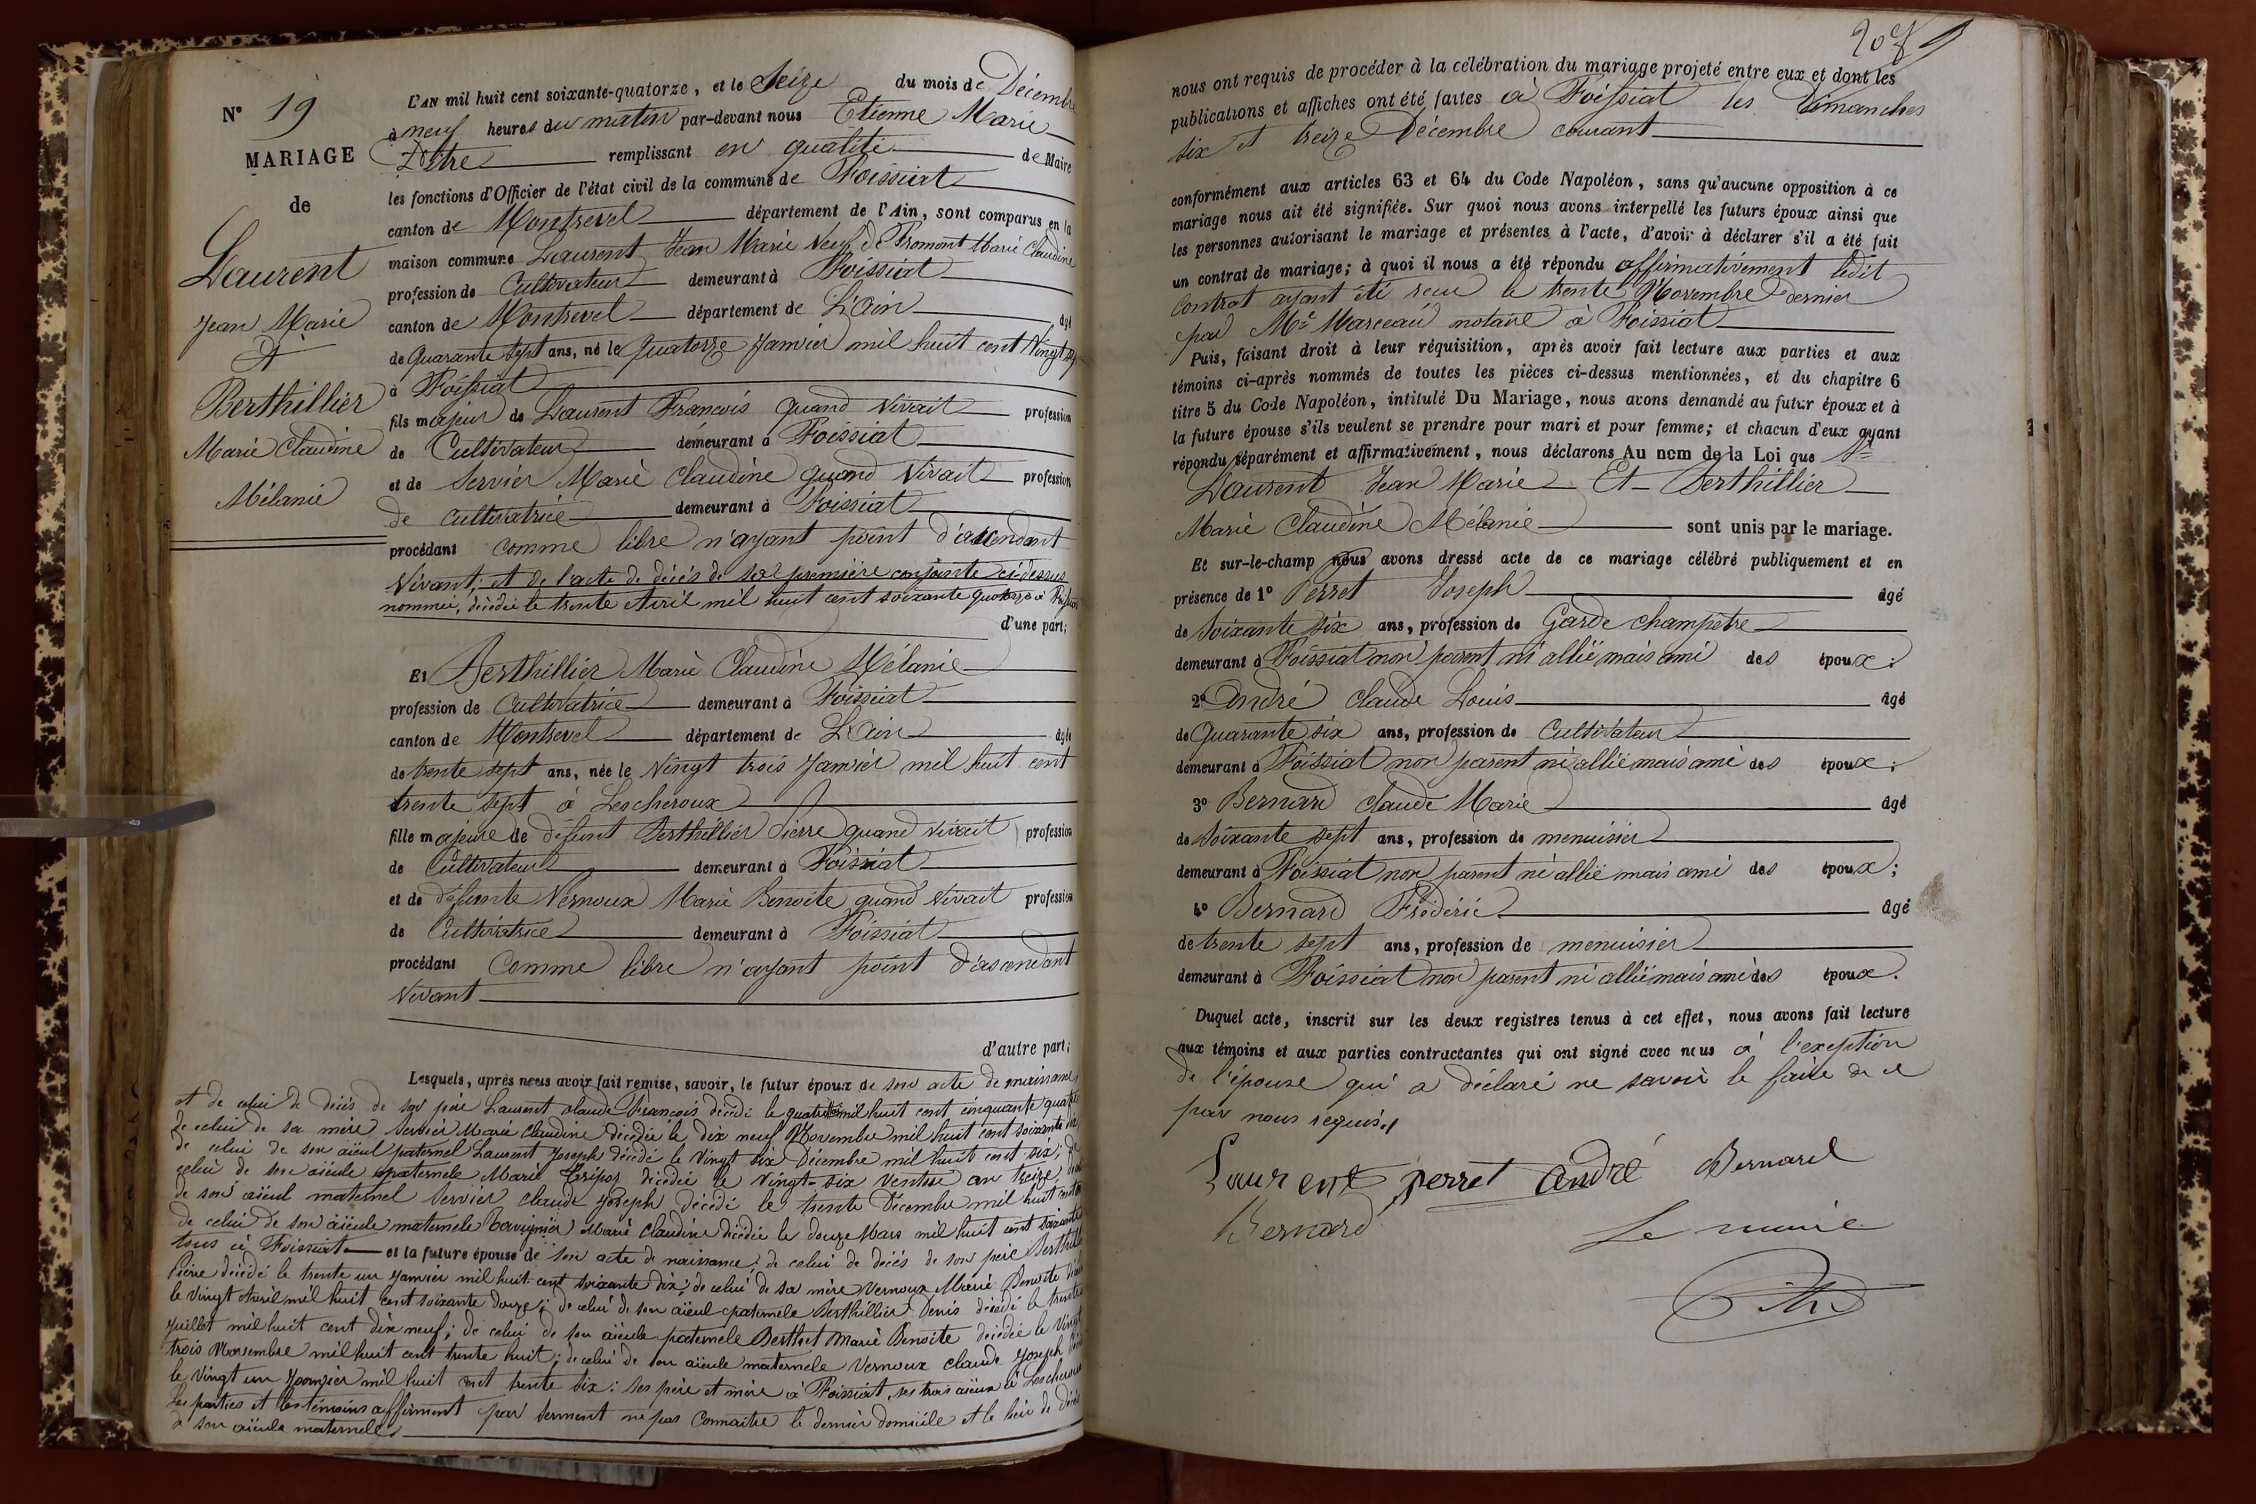 N° 19
MARIAGE
de
Laurent
Jean Marie
Et
Berthillier
Marie Claudine
Mélanie
L'AN mil huit cent soixante-quatorze, et le Seize du mois de Décembre
à neuf heures du matin par-devant nous Etienne Marie
remplissant en qualité de Maire
les fonctions d'Officier de l'état civil de la commune de Foissiat
canton de Montrevel département de l'Ain, sont comparus en la
maison commune Laurent Jean Marie Veuf de Promont Marie Claudine
profession de Cultivateur demeurant à Foissiat
canton de Montrevel département de L'ain âgé
de Quarante sept ans, né le Quatorze Janvier mil huit cent Vingt sept
à Foissiat
fils majeur de Laurent François quand Vivait profession
de Cultivateur demeurant à Foissiat
et de Servier Marie Claudine quand Vivait profession
de cultivatrice demeurant à Foissiat
procédant comme libre n'ayant point d'ascendant
Vivant; et de l'acte de décès de sa première conjointe ci-dessus
nommée, décédée le trente Avril mil huit cent soixante quatorze à Foissiat
d'une part;
Et Berthillier Marie Claudine Mélanie
profession de Cultivatrice demeurant à Foissiat
canton de Montrevel département de L'Ain âgée
de trente sept ans, née le Vingt trois Janvier mil huit cent
trente sept à Lescheroux
fille majeure de défunt Berthillier Pierre quand vivait profession
de Cultivateur demeurant à Foissiat
et de défunte Vernoux Marie Benoite quand vivait profession
de Cultivatrice demeurant à Foissiat
procédant Comme libre n'ayant point d'ascendant
Vivant
d'autre part;
Lesquels, après nous avoir fait remise, savoir, le futur époux de son acte de naissance
et de celui de décès de son père Laurent claude François décédé le quatre mil huit cent cinquante quatre
de celui de sa mère Servier Marie Claudine décédée le dix neuf Novembre mil huit cent soixante dix
de celui de son aïeul paternel Laurent Joseph décédé le Vingt six Décembre mil huit cent six; de
celui de son aïeule paternelle Marie décédée le Vingt-six Ventose an treize;
de son aïeul maternel Servier Claude Joseph décédé le trente Décembre mil huit
de celui de son aïeule maternele Marie Claudine décédée le douze Mars mil huit cent soixante
tous à Foissiat et la future épouse de son acte de naissance; de celui de décès de son père Berthillier
Pierre décédé le trente un Janvier mil huit cent soixante dix; de celui de sa mère Vernoux Marie Benoite
le Vingt Avril mil huit cent soixante douze; de celui de son aïeul paternele Berthillier Denis décédé le trente
Juillet mil huit cent dix neuf; de celui de son aïeule paternele Berthet Marie Benoite décédée le Vingt
trois Novembre mil huit cent trente huit; de celui de son aïeule maternele Vernoux Claude Joseph
le Vingt un Janvier mil huit cent trente six: ses père et mère à Foissiat, ses trois aïeux à Lescheroux
Les parties et les témoins affirment par serment ne pas Connaitre le dernier domicile et le lieu de décès
à son aïeule maternele
nous ont requis de procéder à la célébration du mariage projeté entre eux et dont les
publications et affiches ont été faites à Foissiat les Dimanches
six et treize Décembre courant
conformément aux articles 63 et 64 du Code Napoléon, sans qu'aucune opposition à ce
mariage nous ait été signifiée. Sur quoi nous avons interpellé les futurs époux ainsi que
les personnes autorisant le mariage et présentes à l'acte, d'avoir à déclarer s'il a été fait
un contrat de mariage; à quoi il nous a été répondu affirmativement ledit
Contrat ayant été reçu le trente Novembre dernier
par Me Marceau notaire à Foissiat
Puis, faisant droit à leur réquisition, après avoir fait lecture aux parties et aux
témoins ci-après nommés de toutes les pièces ci-dessus mentionnées, et du chapitre 6
titre 5 du Code Napoléon, intitulé Du Mariage, nous avons demandé au futur époux et à
la future épouse s'ils veulent se prendre pour mari et pour femme; et chacun d'eux ayant
répondu séparément et affirmativement, nous déclarons Au nom de la Loi que
Laurent Jean Marie Et Berthillier
Marie Claudine Mélanie sont unis par le mariage.
Et sur-le-champ nous avons dressé acte de ce mariage célébré publiquement et en
présence de 1° Perret Joseph âgé
de Soixante six ans, profession de Garde champêtre
demeurant à Foissiat non parent ni allié mais ami des époux;
2° André Claude Louis âgé
de Quarante six ans, profession de Cultivateur
demeurant à Foissiat non parent ni allié mais ami des époux;
3° Bernard Claude Marie âgé
de Soixante sept ans, profession de menuisier
demeurant à Foissiat non parent ni allié mais ami des époux;
4° Bernard Frédéric âgé
de trente sept ans, profession de menuisier
demeurant à Foissiat non parent ni allié mais ami des époux.
Duquel acte, inscrit sur les deux registres tenus à cet effet, nous avons fait lecture
aux témoins et aux parties contractantes qui ont signé avec nous à l'exeption
de l'épouse qui a déclaré ne savoir le faire de ce
par nous requis.
Laurent perret andré Bernard
Bernard
Le maire